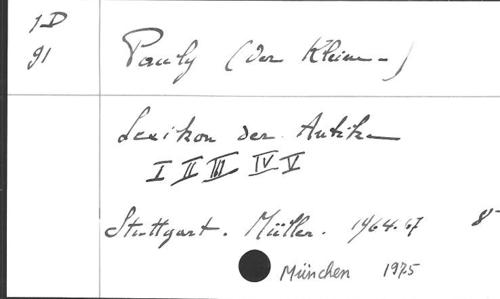 1D
91
Pauly (Der Kleine)
Lexikon der Antike
I II III IV V
Stuttgart. Müller. 1964-67 8°
München 1975